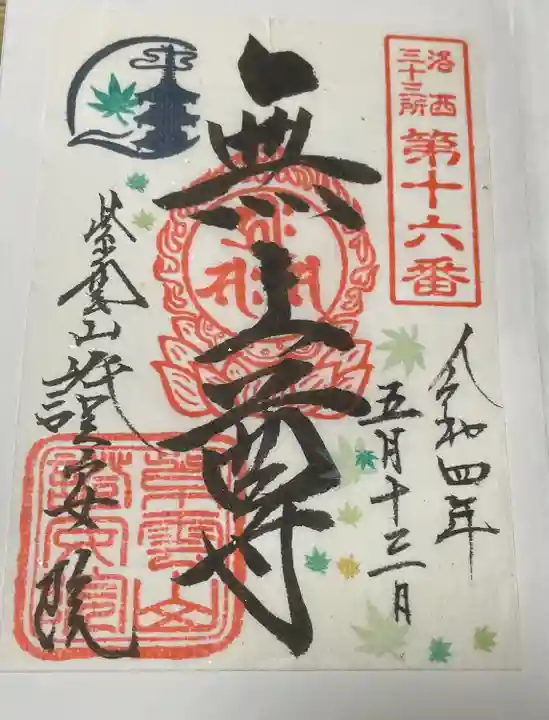 洛西
三十三所
第十六番
令和四年
五月十三日
無上尊
紫雲山
證安院